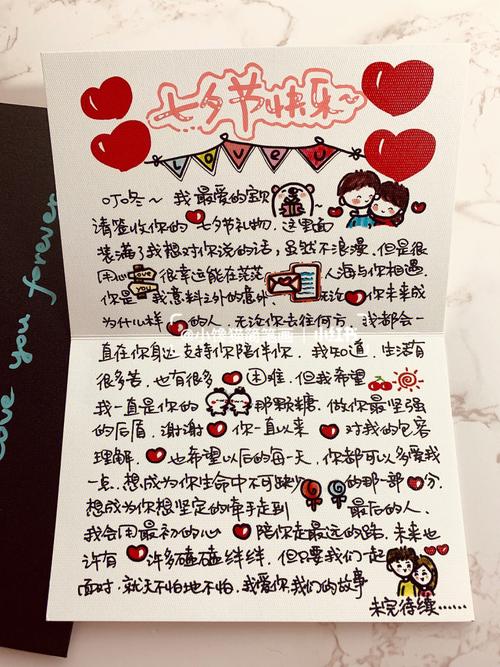 七夕节快乐~
Love U
叮咚~ 我最爱的宝贝
请签收你的七夕节礼物,这里面
装满了我想对你说的话,虽然不浪漫,但是很
用心 Love you 很幸运能在茫茫人海与你相遇,
你是我意料之外的意外 无论你未来成
为什么样的人,无论你去往何方,我都会一
@小馋猫简笔画 小红书
直在你身边支持你陪伴你,我知道,生活有
很多苦,也有很多困难,但我希望
我一直是你的那颗糖,做你最坚强
的后盾,谢谢你一直以来对我的包容
理解,也希望以后的每一天,你都可以多爱我
一点,想成为你生命中不可缺少的那一部份,
想成为你想坚定的牵手走到最后的人,
我会用最初的心陪你走最远的路,未来也
许有许多磕磕绊绊,但只要我们一起
面对,就天不怕地不怕,我爱你,我们的故事
未完待续……
Love you forever